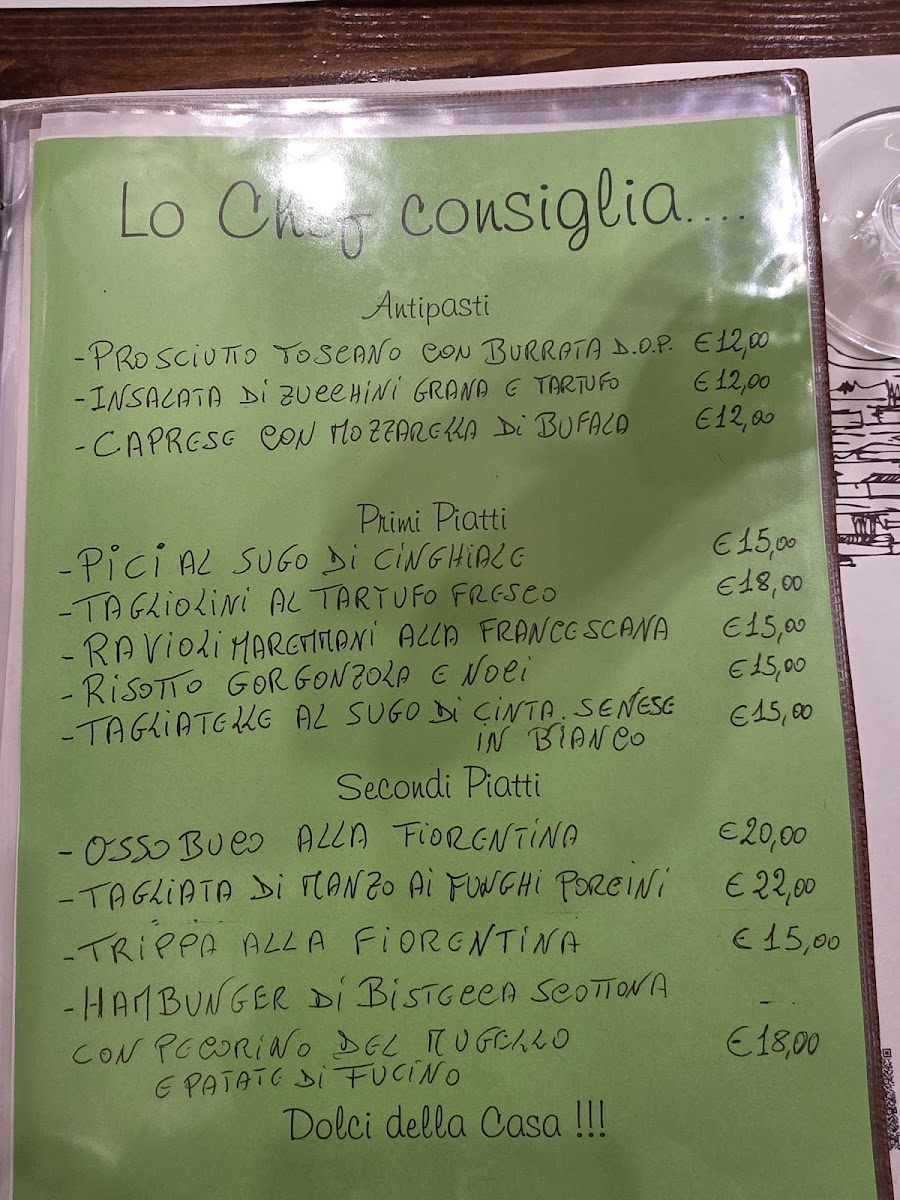 Lo Chef consiglia....
Antipasti
- PROSCIUTTO TOSCANO CON BURRATA D.O.P. €12,00
- INSALATA Di ZUCCHINI GRANA E TARTUFO €12,00
- CAPRESE CON MOZZARELLA Di BUFALA €12,00
Primi Piatti
- PiCi AL SUGO Di CiNGHiALE €15,00
- TAGLIOLINI AL TARTUFO FRESCO €18,00
- RAVIOLI MAREMMANI ALLA FRANCESCANA €15,00
- RISOTTO GORGONZOLA E NOCi €15,00
- TAGLIATELLE AL SUGO Di CINTA SENESE €15,00
IN BIANCO
Secondi Piatti
- OSSOBUCO ALLA FIORENTINA €20,00
- TAGLIATA Di MANZO Ai FUNGHI PORCINI €22,00
- TRIPPA ALLA FIORENTINA €15,00
- HAMBUNGER Di BISTECCA SCOTTONA
CON PECORINO DEL MUGELLO €18,00
E PATATE Di FUCINO
Dolci della Casa !!!